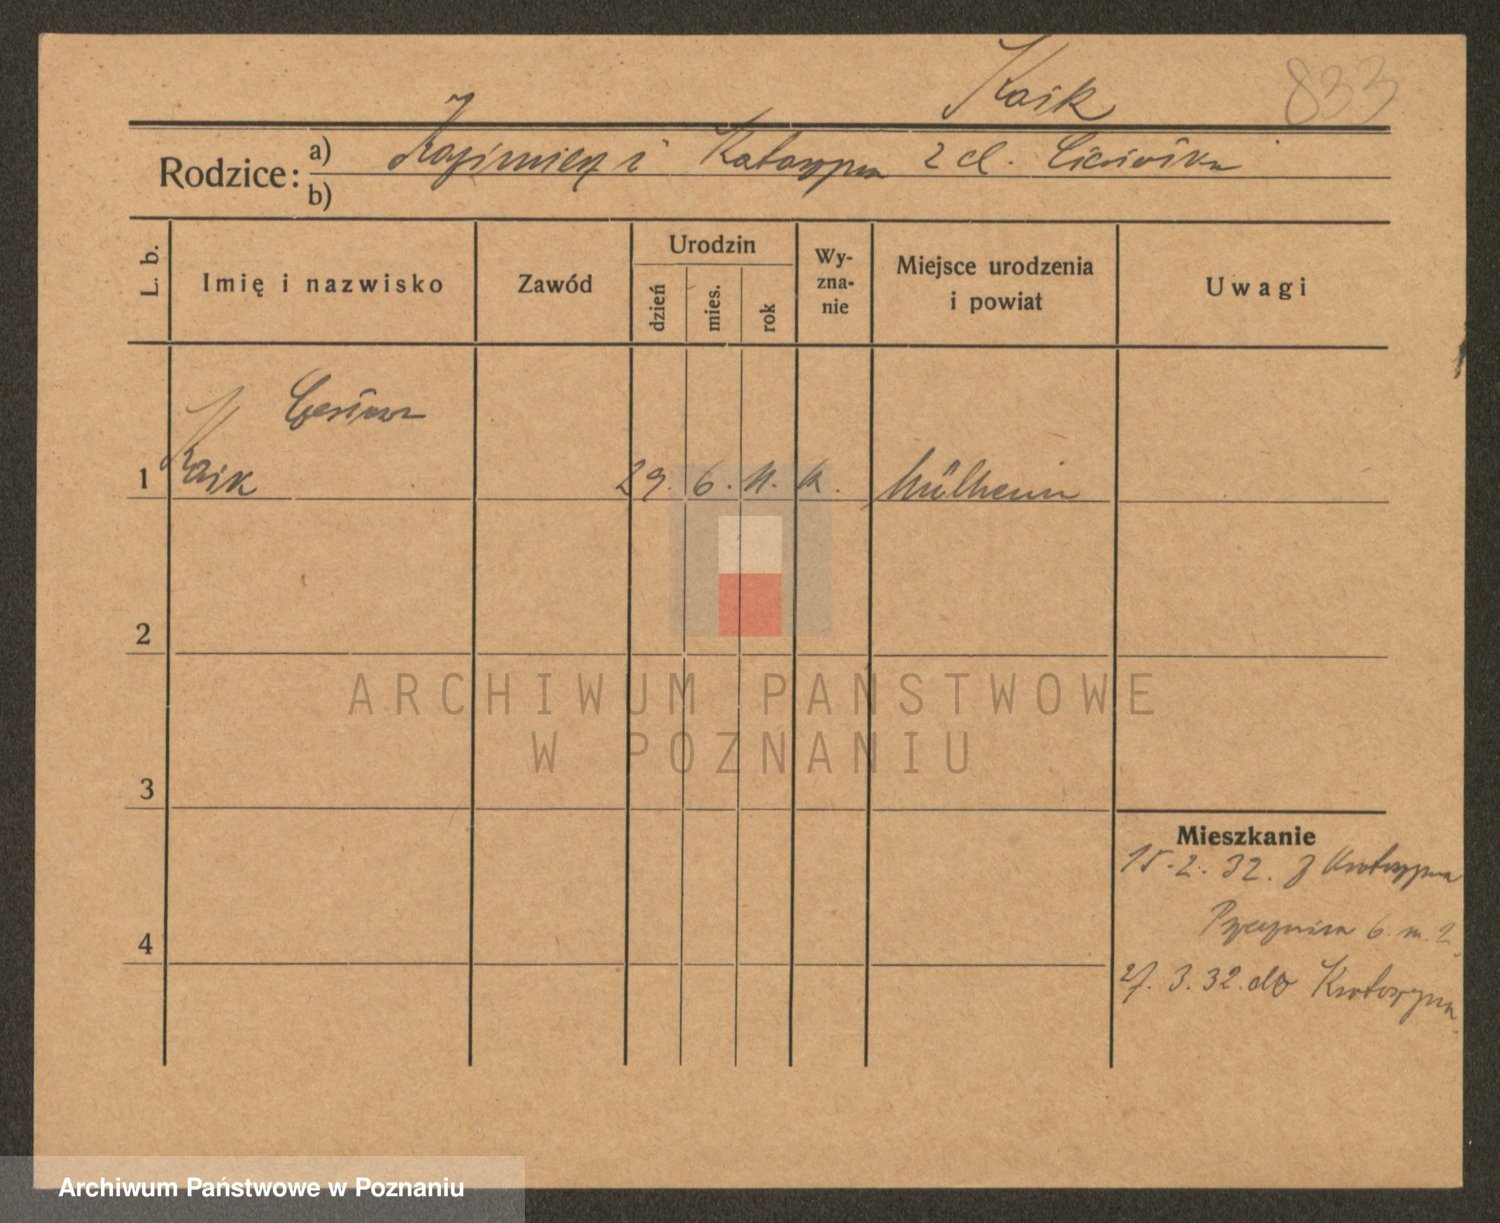 Kaik
833
Rodzice: a) Kazimierz i Katarzyna z d.
b)
L. b.
Imię i nazwisko
Zawód
Urodzin
dzień
mies.
rok
Wy-
zna-
nie
Miejsce urodzenia
i powiat
Uwagi
1
Kaik
29. 6. 11. k. Mülheim
2
ARCHIWUM PAŃSTWOWE
W POZNANIU
3
4
Mieszkanie
15. 2. 32. z Krotoszyna
6. m. 2
27. 3. 32. do Krotoszyna
Archiwum Państwowe w Poznaniu